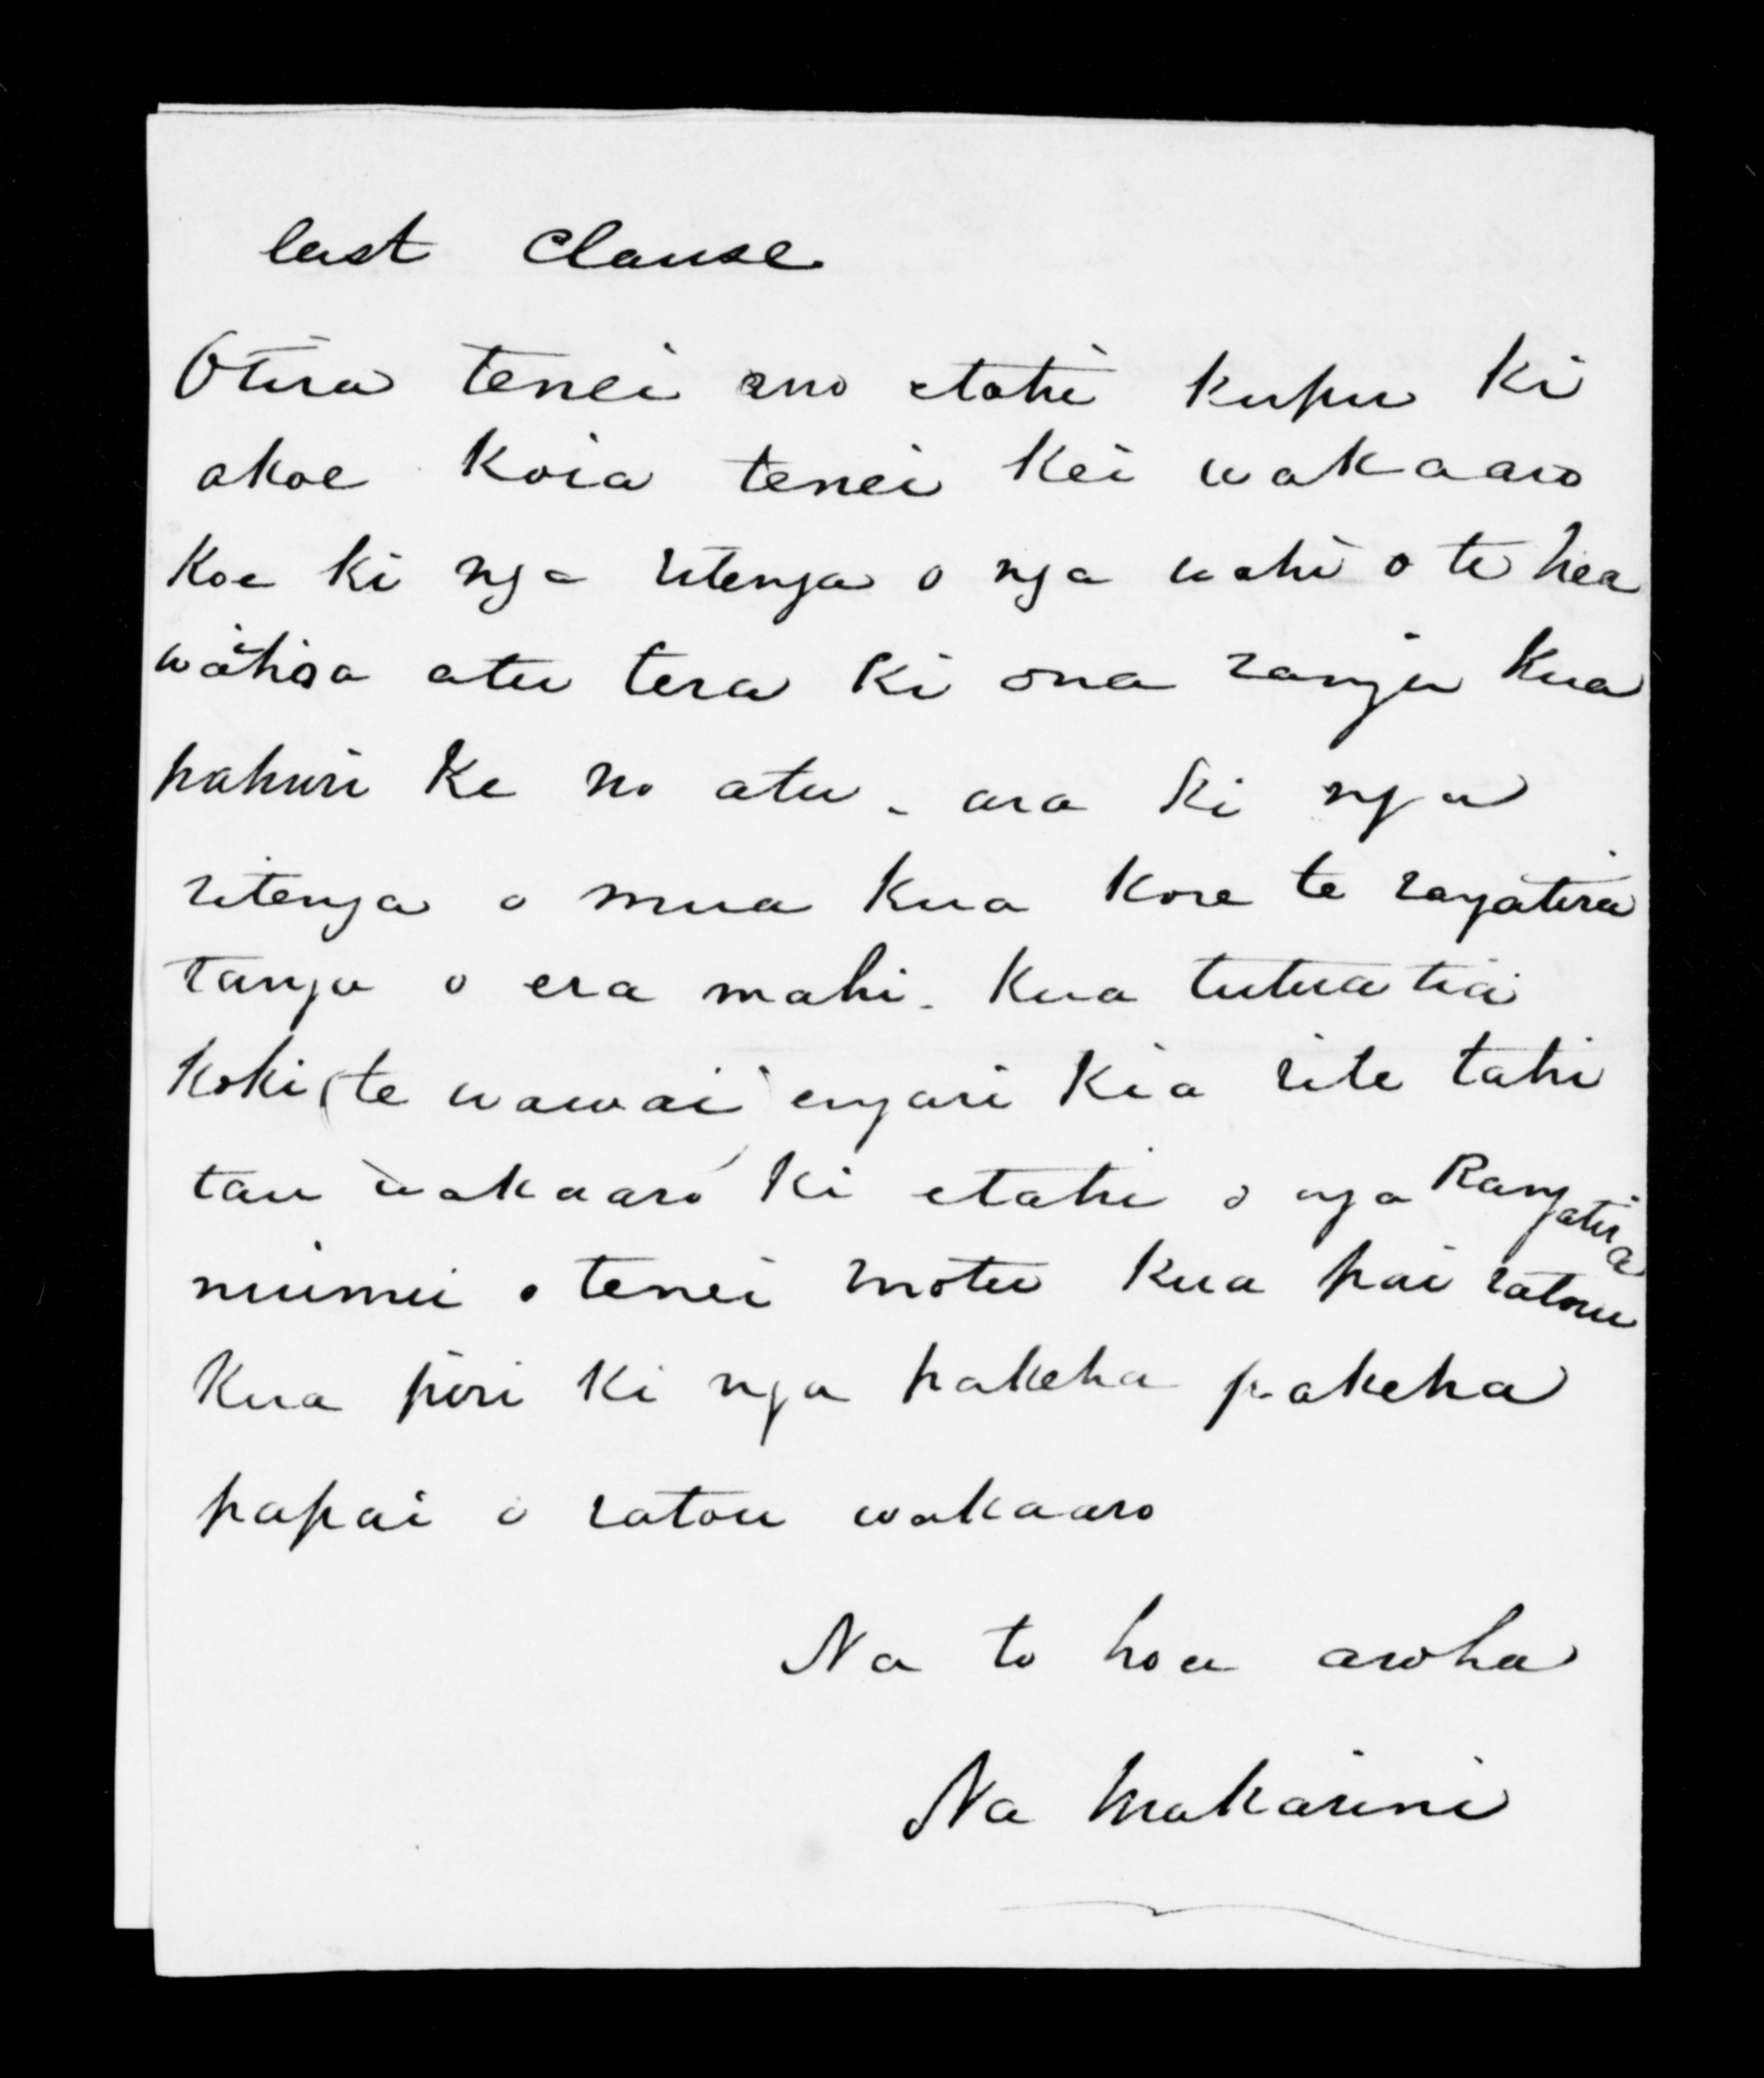 last Clause
Otira tenei ano etahi kupu ki
akoe koia tenei kei wakaaro
koe ki nga ritenga o nga wahi o te hea
atu tera ki ona ranga kua
pahuri ke no atu - ara ki nga
ritenga o mua kua kore te rangatira
tanga o era mahi. kua tutua tia
koki te wawai engari kia rite tahi
tau wakaaro ki etahi o nga Rangatira
nunui o tenei motu kua pai ratou
kua piri ki nga pakeha pakeha
papai o ratou wakaaro
Na to hoa aroha
Na Makarini